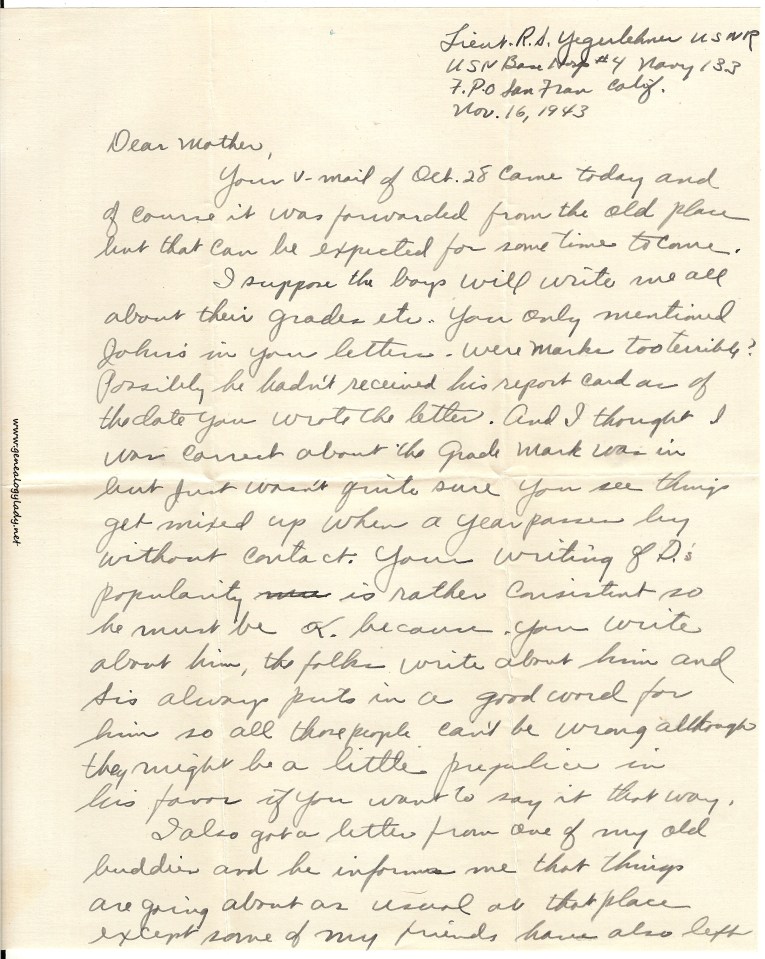 Lieut. R.S. Yegerlehner USNR
USN Base Hosp #4 Navy 133
F.P.O San Fran Calif.
Nov. 16, 1943
Dear Mother,
Your V-mail of Oct. 28 came today and
of course it was forwarded from the old place
but that can be expected for some time to come.
I suppose the boys will write me all
about their grades etc. You only mentioned
John's in you letter. Were Marks too terrible?
Possibly he hadn't received his report card as of
the date you wrote the letter. And I thought I
was correct about the Grade Mark was in
but just wasn't quite sure you see things
get mixed up when a year passes by
without contact. Your writing of D.'s
popularity is rather consistent so
he must be OK. because you write
about him, the folks write about him and
Sis always puts in a good word for
him so all those people can't be wrong although
they might be a little prejudice in
his favor if you want to say it that way.
I also got a letter from one of my old
buddies and he informs me that things
are going about as usual at that place
except some of my friends have also left
www.genealogylady.net